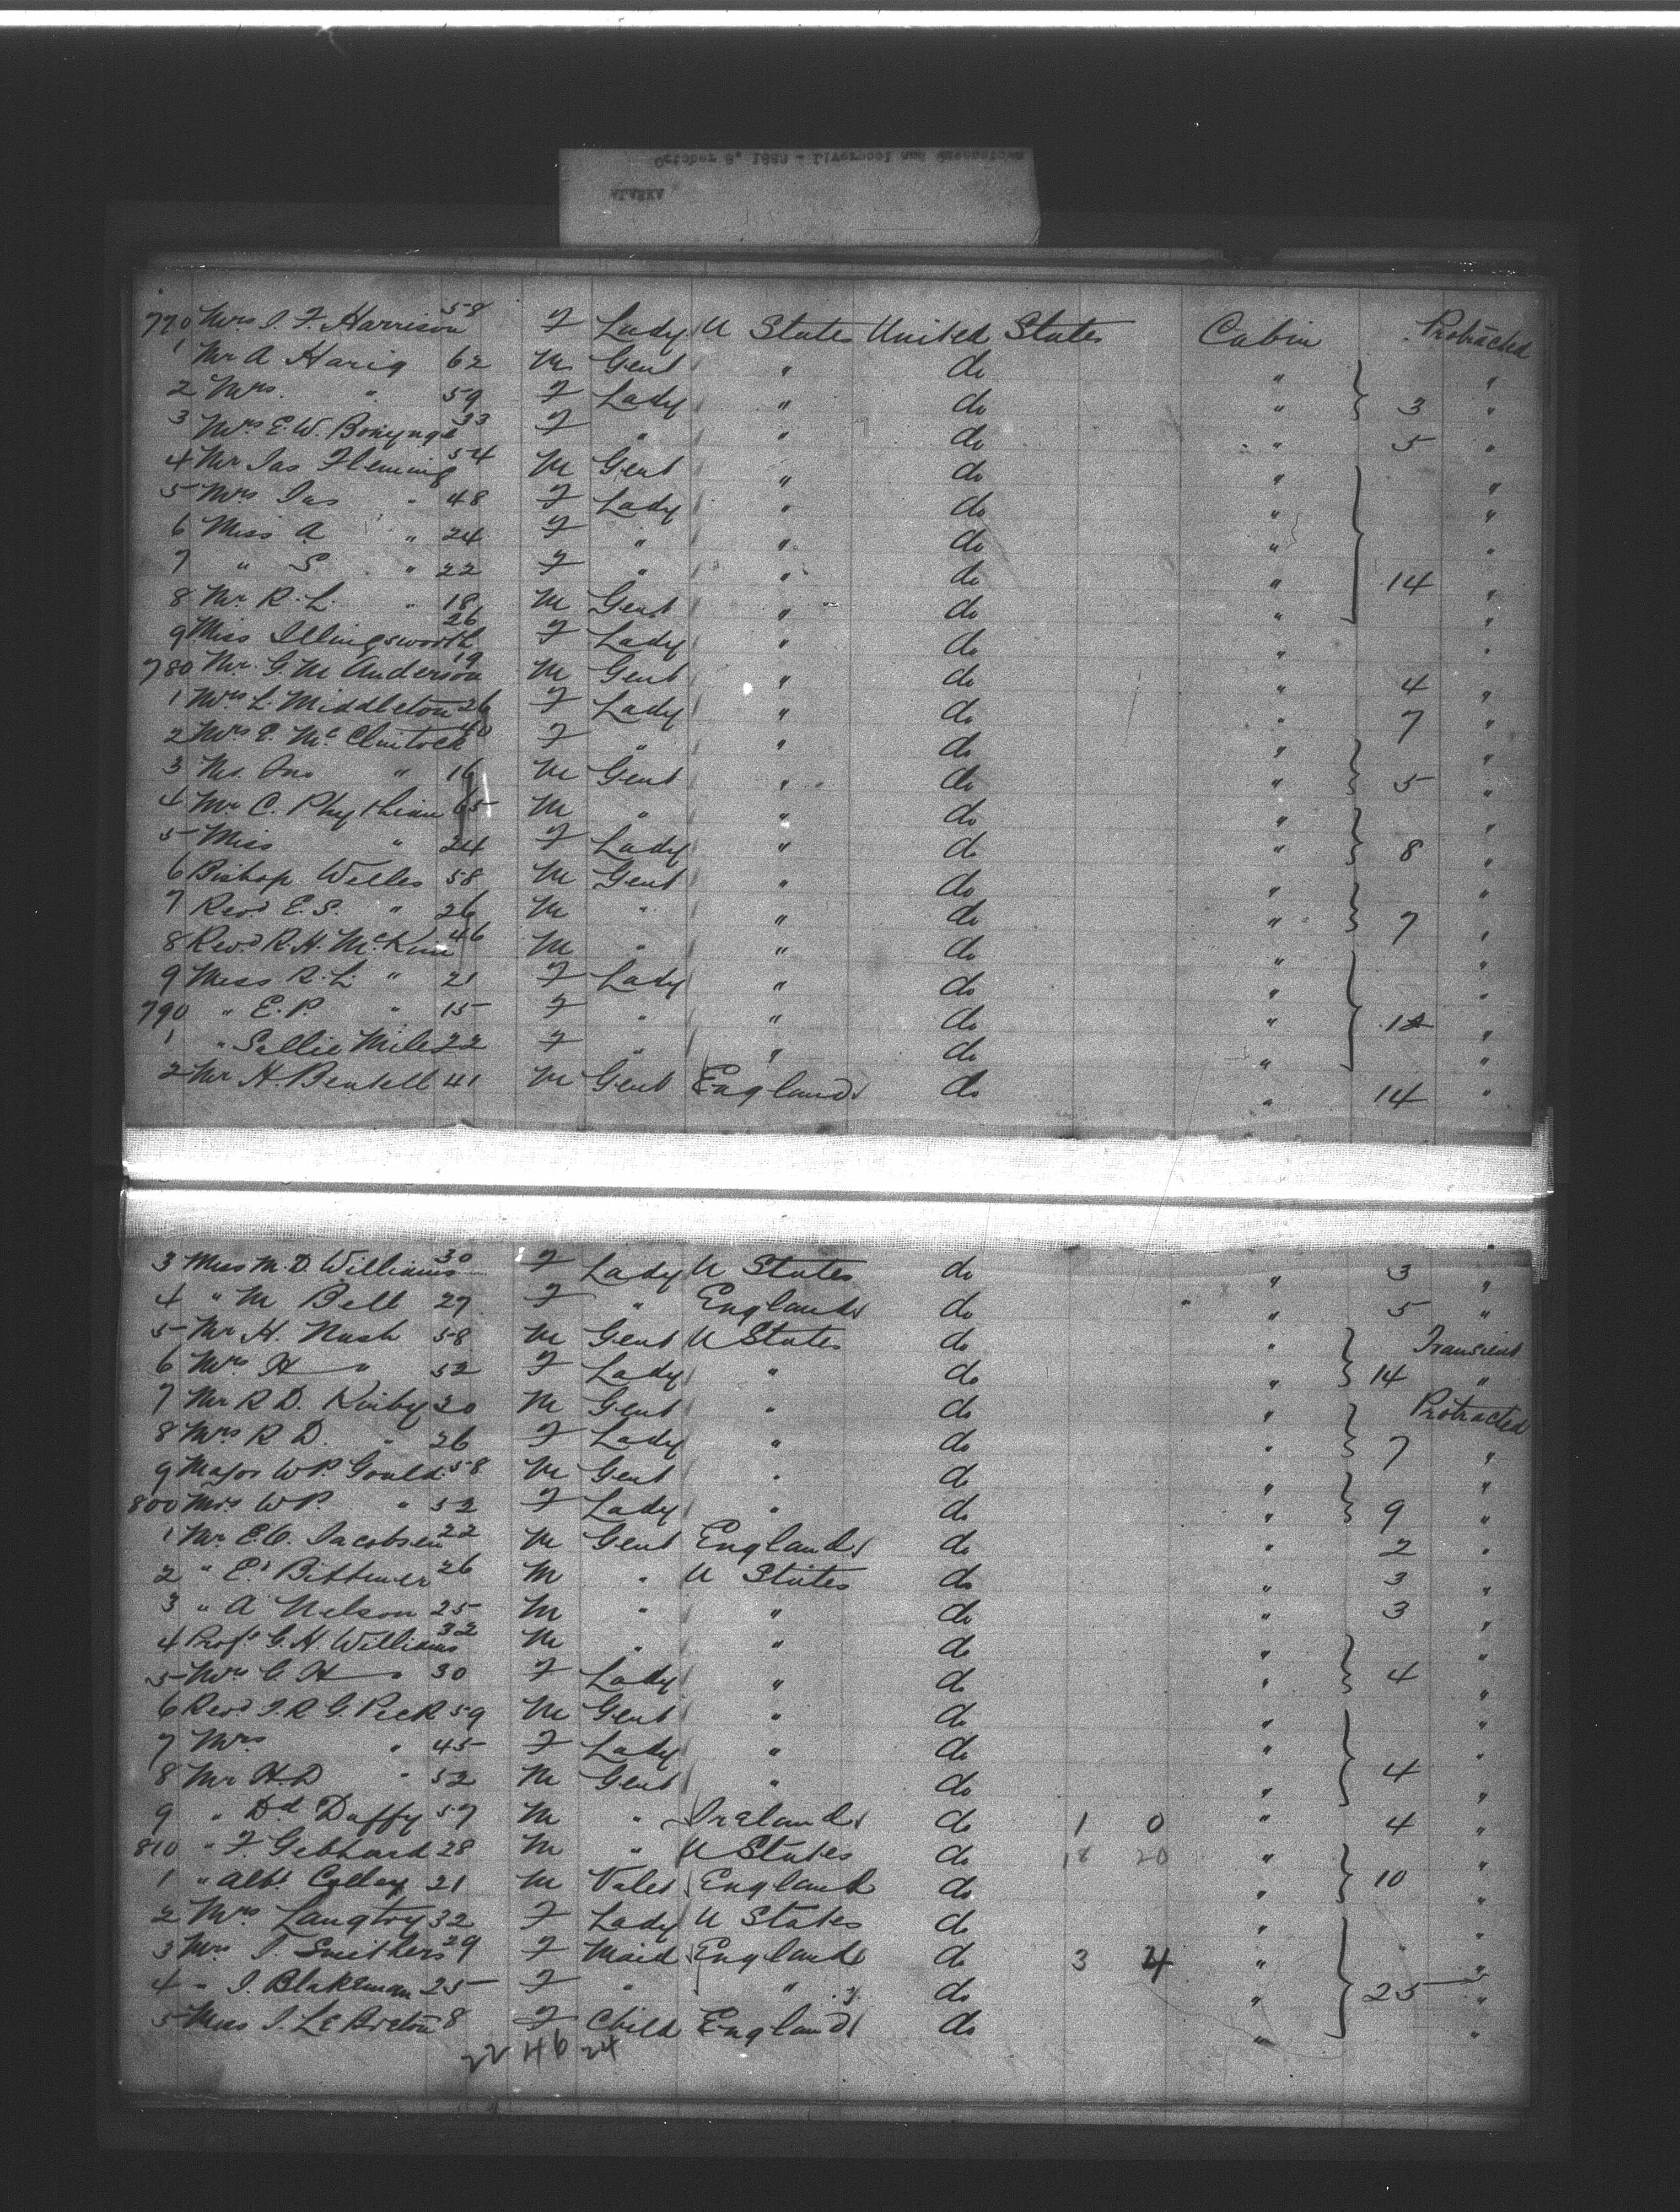 October 8, 1889 - Liverpool and Queenstown
ALASKA
770 Mrs I. F. Harrison 58 F Lady U States United States Cabin Protracted
1 Mr A Harig 62 M Gent " do " "
2 Mrs. " 59 F Lady " do " 3 "
3 Mrs E. W. Bonynge 33 F " " do " 5 "
4 Mr Jas Fleming 54 M Gent " do " "
5 Mrs Jas " 48 F Lady " do " "
6 Miss A " 24 F " " do " "
7 " S " 22 F " " do " 14 "
8 Mr R. L. " 18 M Gent " do " "
9 Miss Illingsworth 26 F Lady " do " "
780 Mr. G. M Anderson 19 M Gent " do " 4 "
1 Mrs L. Middleton 26 F Lady " do " 7 "
2 Mrs E. McClintock 40 F " " do " "
3 Mr. Jno " 16 M Gent " do " 5 "
4 Mr C. Phythian 65 M " " do " "
5 Miss " 24 F Lady " do " 8 "
6 Bishop Welles 58 M Gent " do " "
7 Revd E. S. " 26 M " " do " 7 "
8 Revd R. H. McKim 46 M " " do " "
9 Miss R. L. " 21 F Lady " do " "
790 " E. P. " 15 F " " do " 12 "
1 " Sallie Mile 22 F " " do " "
2 Mr H. Bentell 41 M Gent England do " 14 "
3 Miss M. D. Williams 30 F Lady U States do " 3 "
4 " M Bell 27 F " England do " 5 "
5 Mr H. Nash 58 M Gent U States do " Transient
6 Mrs H " 52 F Lady " do " 14 "
7 Mr R. D. Kirby 20 M Gent " do " Protracted
8 Mrs R D. " 26 F Lady " do " 7 "
9 Major W. P. Gould 58 M Gent " do " "
800 Mrs W P. " 52 F Lady " do " 9 "
1 Mr. E. O. Jacobsen 22 M Gent England do " 2 "
2 " E. Bittmer 26 M " U States do " 3 "
3 " A Nelson 25 M " " do " 3 "
4 Profr G. H. Williams 32 M " " do " "
5 Mrs G. H " 30 F Lady " do " 4 "
6 Revd J. R. G. Peck 59 M Gent " do " "
7 Mrs " 45 F Lady " do " "
8 Mr H. D " 52 M Gent " do " 4 "
9 " Dd Duffy 57 M " Ireland do 1 0 " 4 "
810 " F. Gebhard 28 M " U States do 18 20 " "
1 " Albt. Colley 21 M Valet England do " 10 "
2 Mrs Langtry 32 F Lady U States do " "
3 Mrs J. Smithers 29 F Maid England do 3 4 " "
4 " J. Blakeman 25 F " " do " 25 "
5 Miss J. Le Breton 8 F Child England do " "
22 46 24